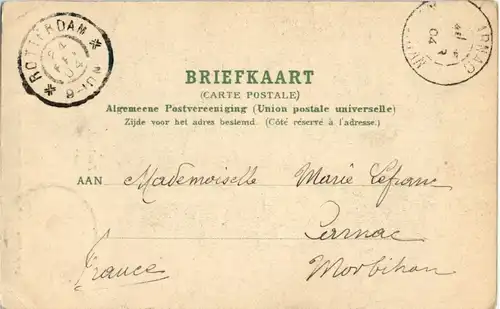 ROTTERDAM 8-11N
04
BRIEFKAART
(CARTE POSTALE)
Algemeene Postvereeniging (Union postale universelle)
Zijde voor het adres bestemd. (Côté réservé à l'adresse.)
AAN Mademoiselle Marie Lefranc
France
Morbihan